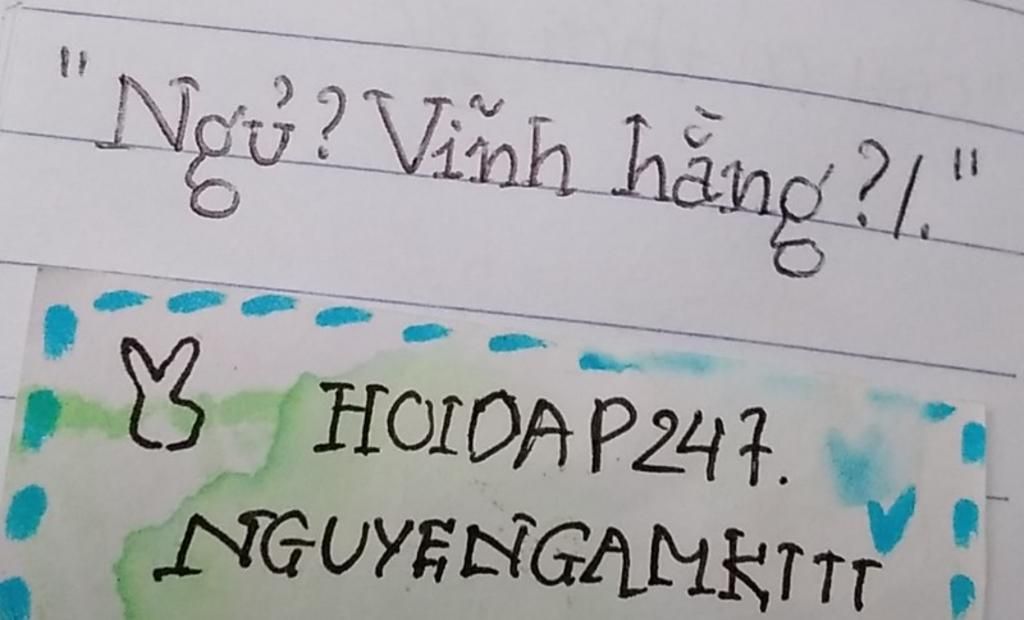 "Ngủ? Vĩnh hằng?/."
HOIDAP247.
NGUYENGAMKTTT